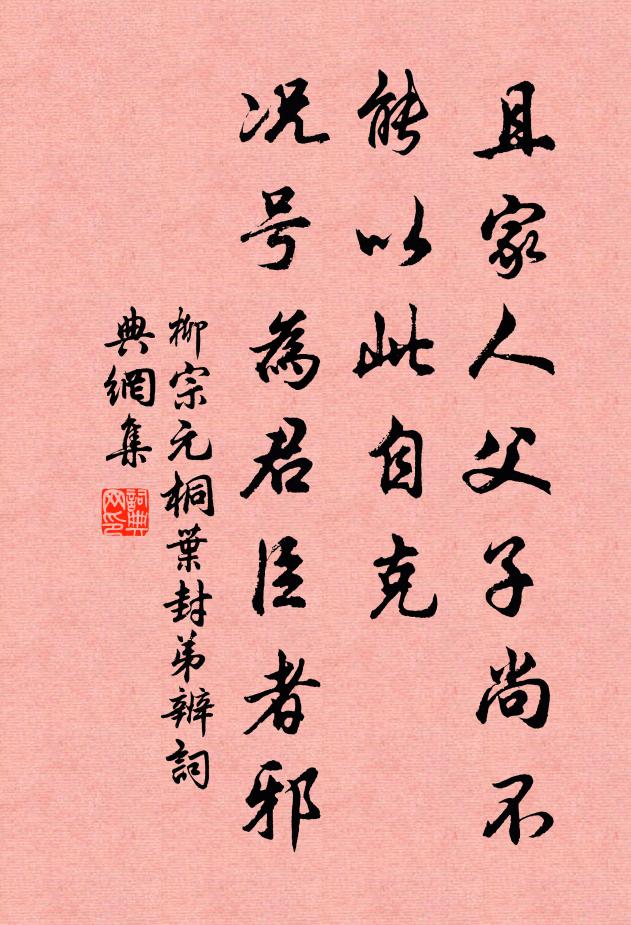 且家人父子尚不
能以此自克
况号為君臣者邪
柳宗元桐葉封弟辨詞
典網集
詞典
网印